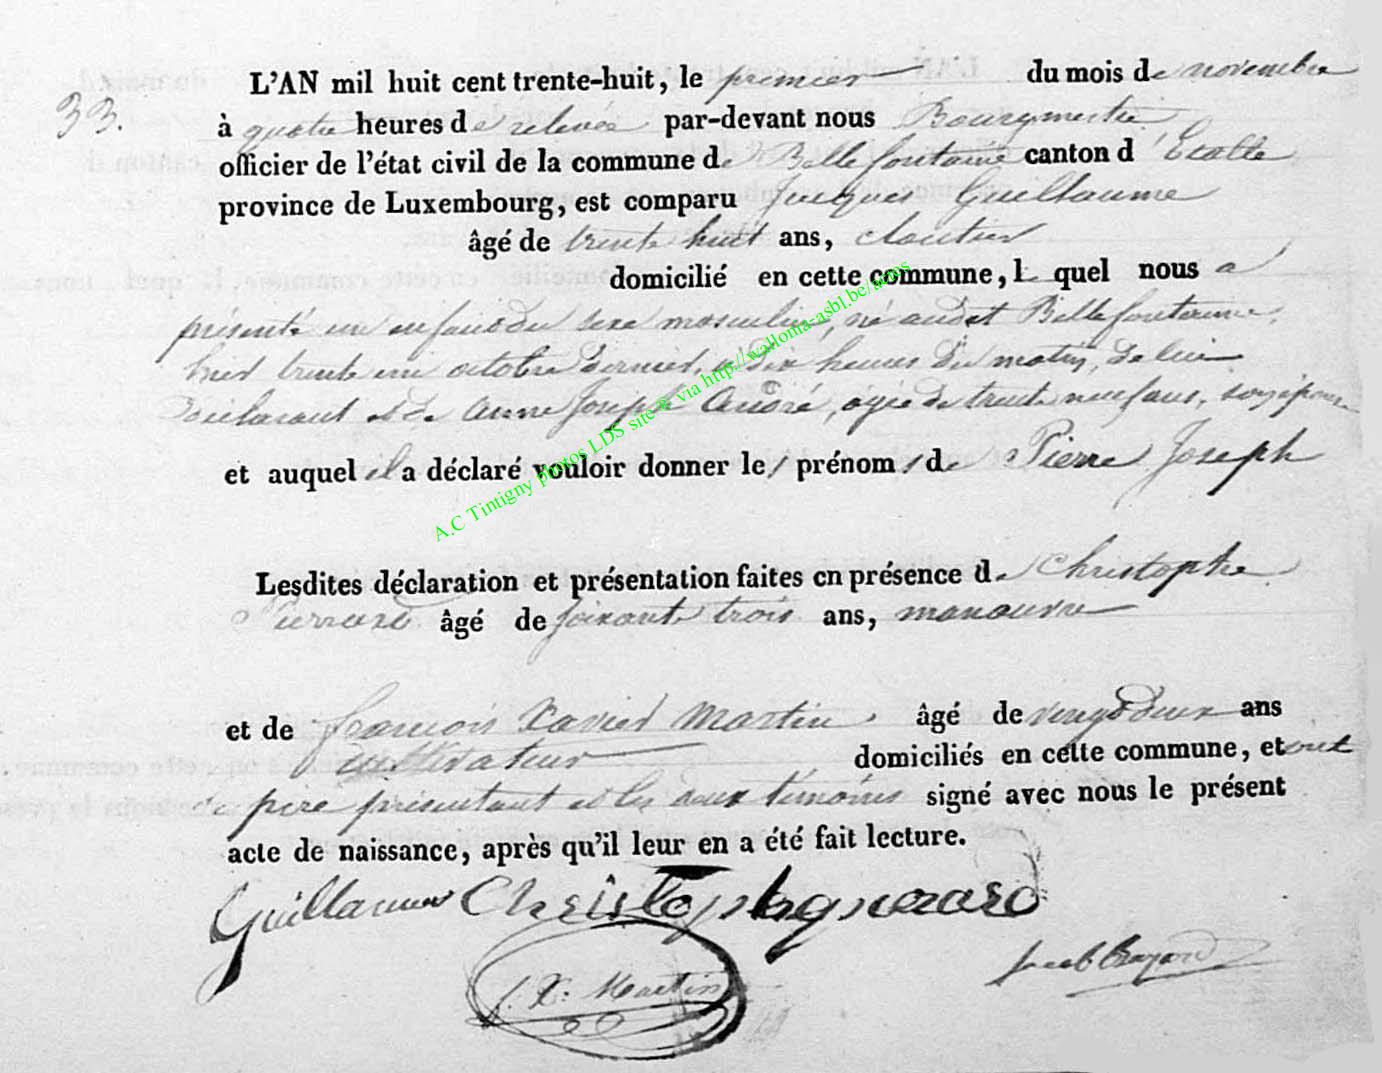 33.
L'AN mil huit cent trente-huit, le premier du mois de novembre
à quatre heures de relevée par-devant nous Bourgmestre
officier de l'état civil de la commune de Bellefontaine canton d'Etalle
province de Luxembourg, est comparu Jacques Guillaume
âgé de trente huit ans, cloutier
domicilié en cette commune, le quel nous a
présenté un enfant du sexe masculin, né audit Bellefontaine,
hier trente un octobre dernier, à dix heures du matin, de lui
déclarant et de Anne Joseph André, agée de trente neuf ans, son épouse
et auquel il a déclaré vouloir donner les prénoms de Pierre Joseph
Lesdites déclaration et présentation faites en présence de Christophe
Pierrard âgé de soixante trois ans, manouvre
et de François Xavier Martin, âgé de vingt deux ans
cultivateur domiciliés en cette commune, et ont
le père présentant et les deux témoins signé avec nous le présent
acte de naissance, après qu'il leur en a été fait lecture.
Guillaume Christophe pierard
f. X. Martin
A.C Tintigny photos LDS site® via http://wallonia-asbl.be/actes